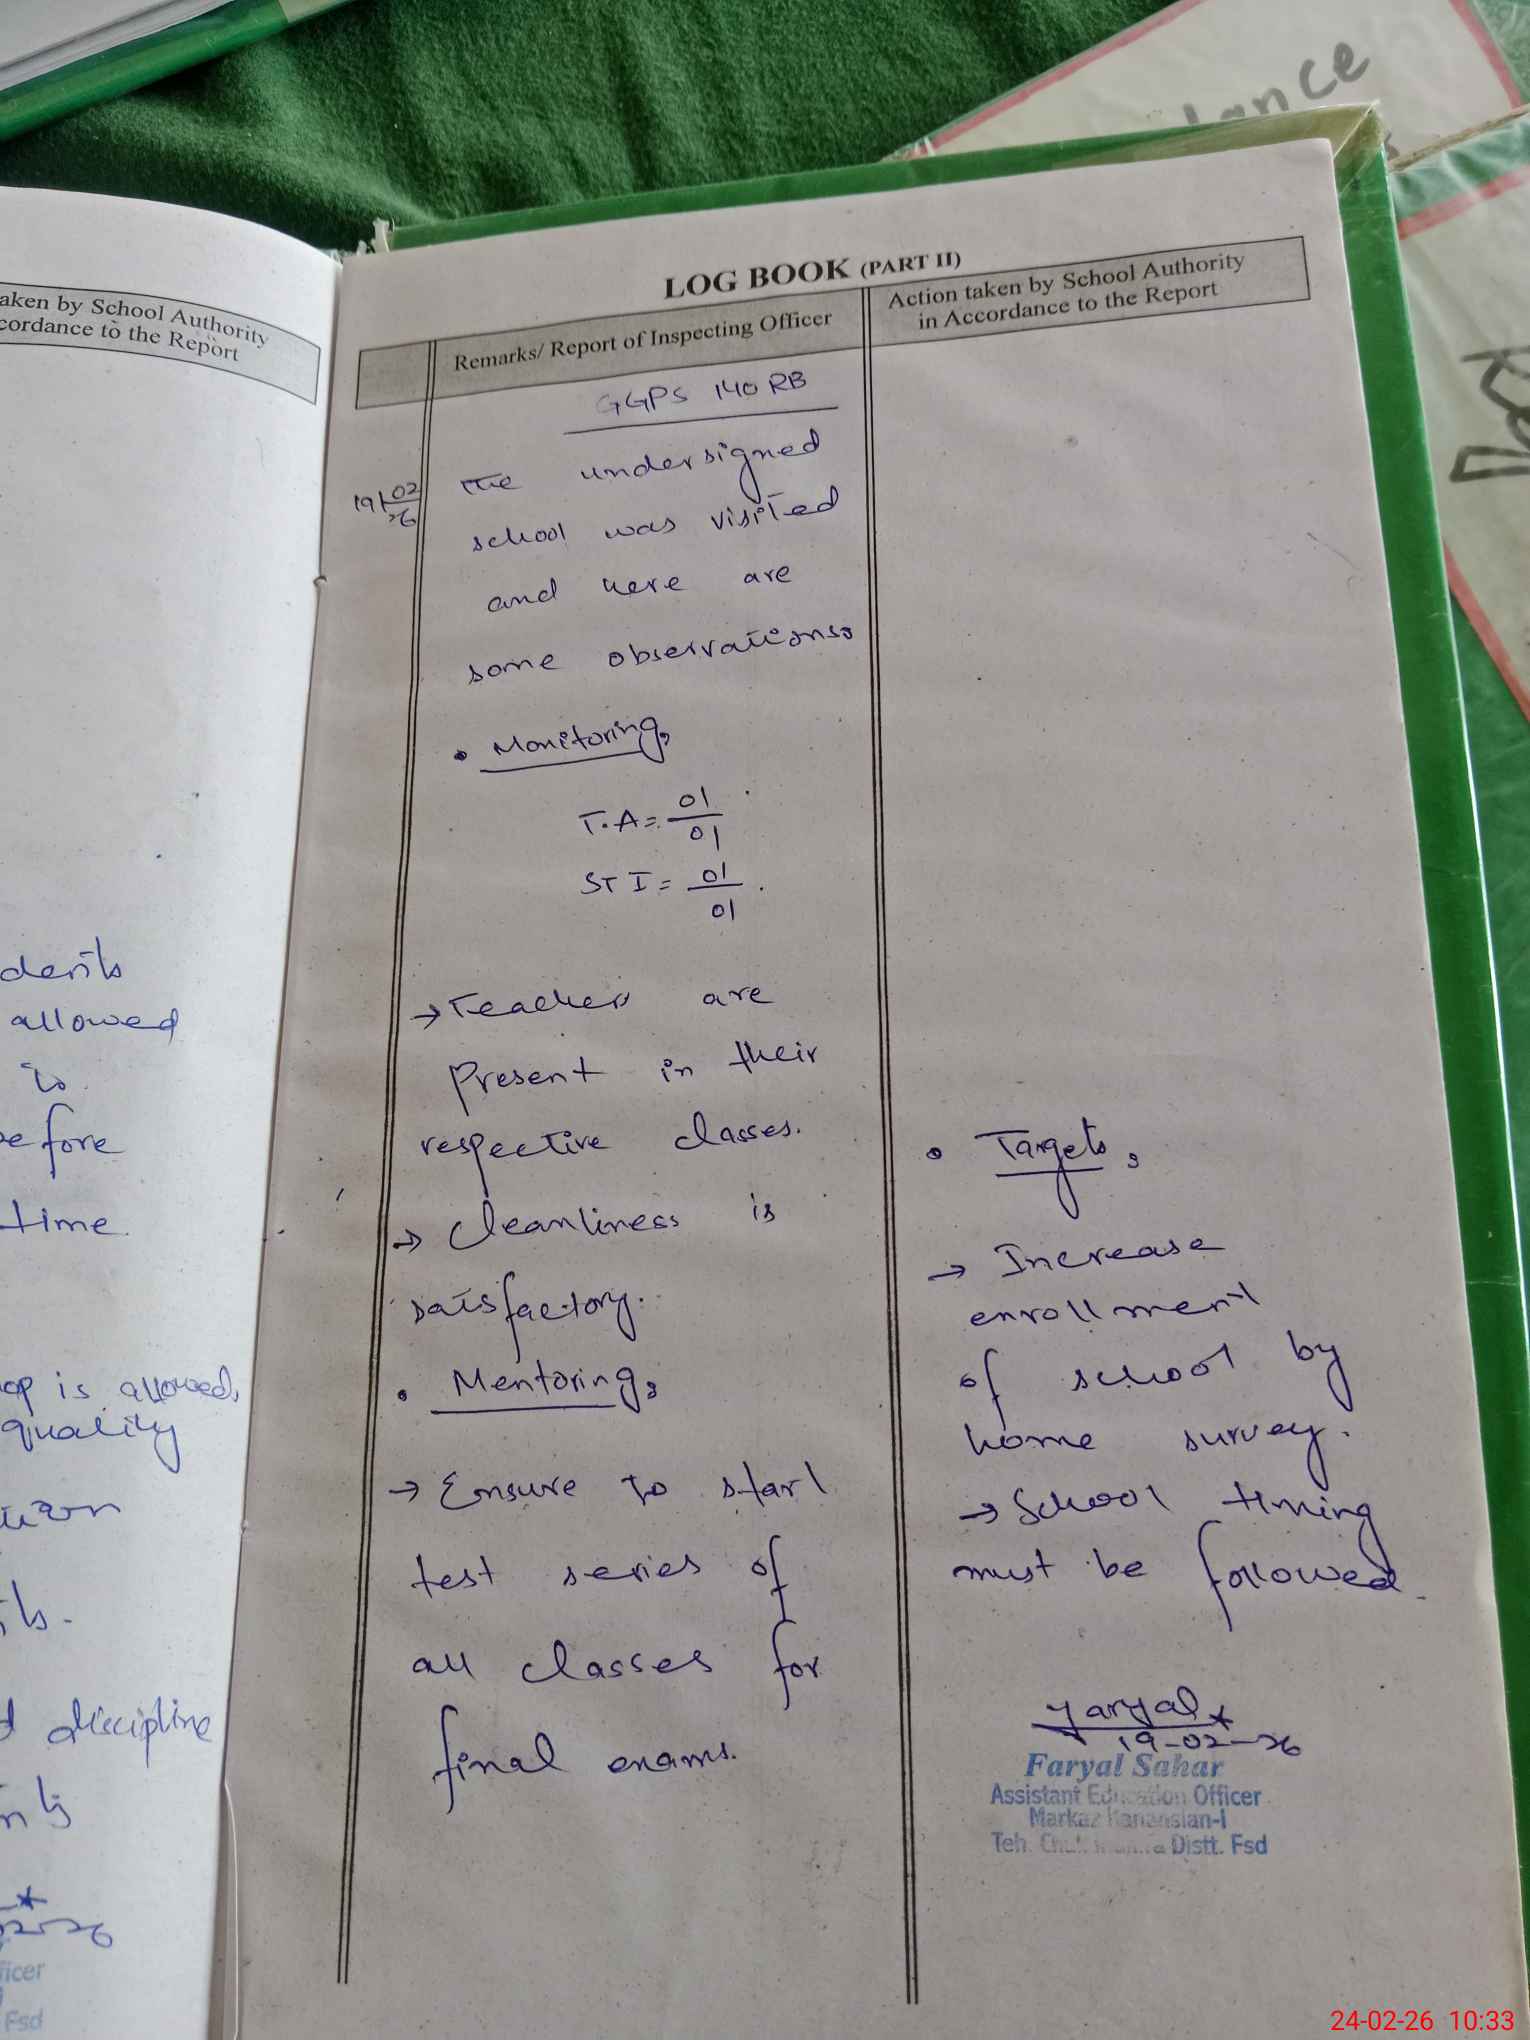 lance
aken by School Authority
cordance to the Report
dents
allowed
is
efore
time.
op is allowed,
quality
discipline
ficer
Fsd
LOG BOOK (PART II)
Remarks/ Report of Inspecting Officer
Action taken by School Authority
in Accordance to the Report
GGPS 140 RB
19/02/26
The undersigned
school was visited
and here are
some observations:
• Monitoring,
T.A = 01/01
ST I = 01/01
→ Teachers are
Present in their
respective classes.
→ Cleanliness is
satisfactory.
• Mentoring,
→ Ensure to start
test series of
all classes for
final exams.
• Targets,
→ Increase
enrollment
of school by
home survey.
→ School timing
must be followed.
Faryal
19-02-26
Faryal Sahar
Assistant Education Officer
Markaz
Teh. Distt. Fsd
24-02-26 10:33